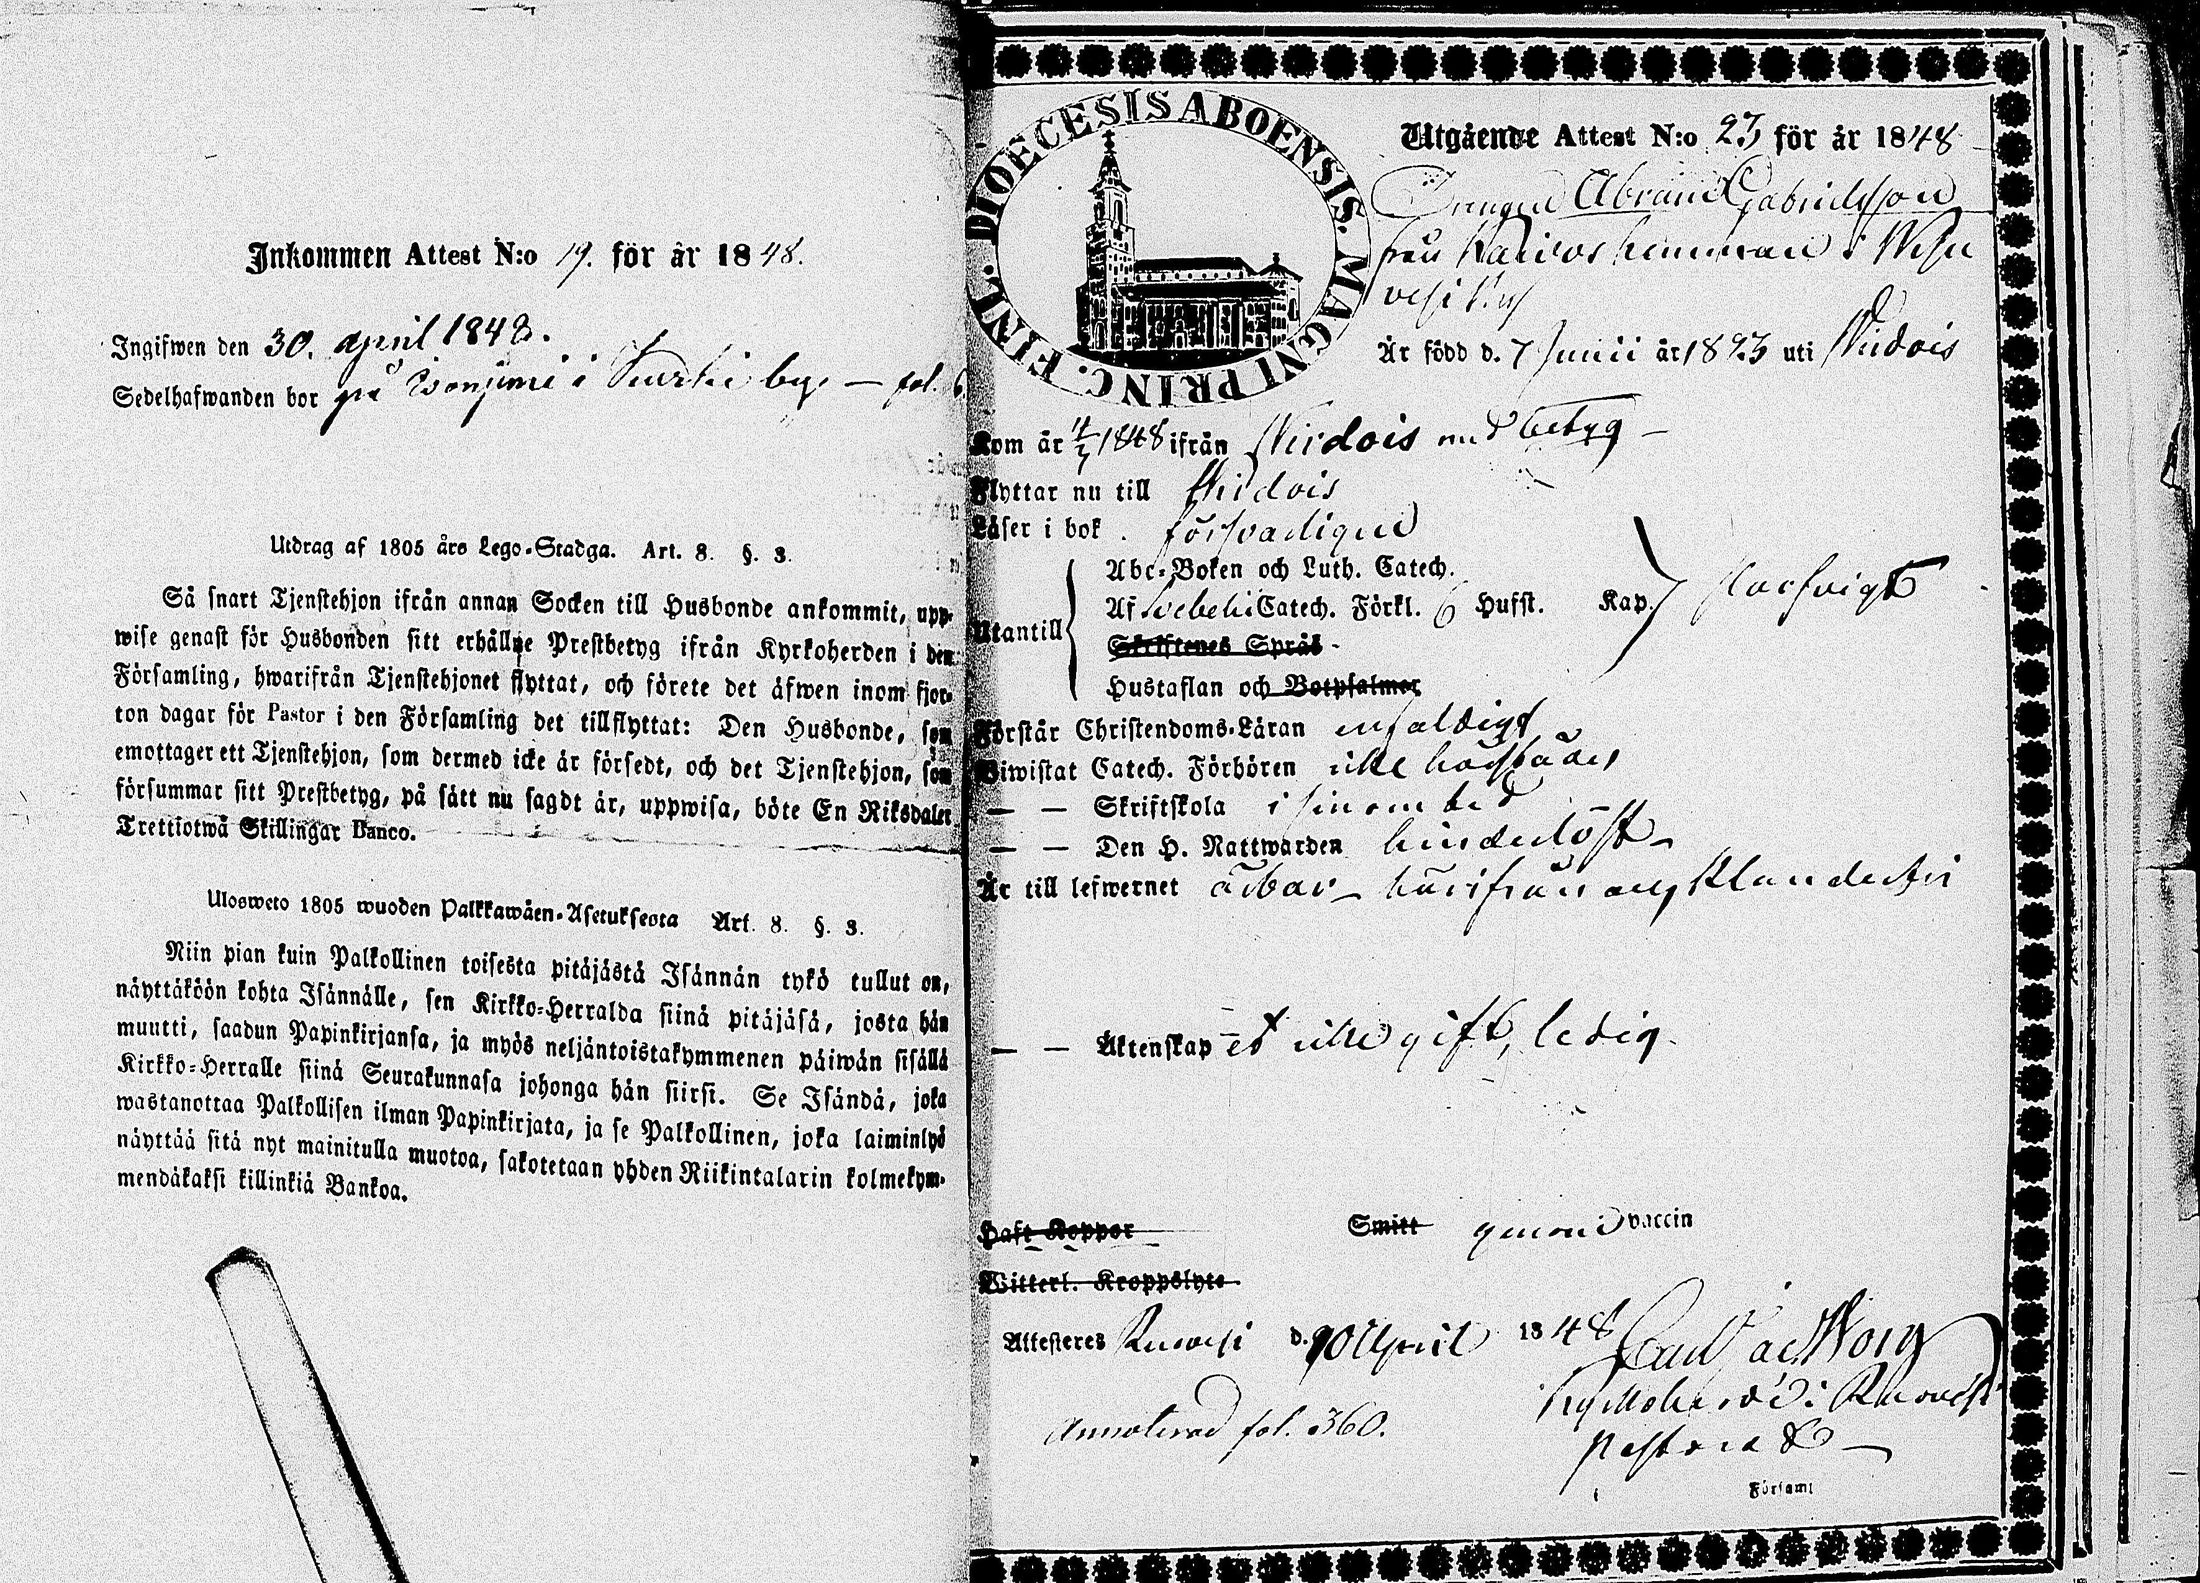 Inkommen Attest N:o 19. för år 1848.
Ingifwen den 30. april 1848.
Sedelhafwanden bor på i by. — fol. 6
Utdrag af 1805 års Lego-Stadga. Art. 8. §. 3.
Så snart Tjenstehjon ifrån annan Socken till Husbonde ankommit, upp-
wise genast för Husbonden sitt erhållne Prestbetyg ifrån Kyrkoherden i den
Församling, hwarifrån Tjenstehjonet flyttat, och förete det äfwen inom fjor-
ton dagar för Pastor i den Församling det tillflyttat: Den Husbonde, som
emottager ett Tjenstehjon, som dermed icke är försedt, och det Tjenstehjon, som
försummar sitt Prestbetyg, på sätt nu sagdt är, uppwisa, böte En Riksdaler
Trettiotwå Skillingar Banco.
Ulosweto 1805 wuoden Palkkawäen-Asetuksesta Art. 8. §. 3.
Niin pian kuin Palkollinen toisesta pitäjästä Isännän tykö tullut on,
näyttäköön kohta Isännälle, sen Kirkko-Herralda siinä pitäjäsä, josta hän
muutti, saadun Papinkirjansa, ja myös neljäntoistakymmenen päiwän sisällä
Kirkko-Herralle siinä Seurakunnasa johonga hän siirsi. Se Isändä, joka
wastanottaa Palkollisen ilman Papinkirjata, ja se Palkollinen, joka laiminlyö
näyttää sitä nyt mainitulla muotoa, sakotetaan yhden Riikintalarin kolmekym-
mendäkaksi killinkiä Bankoa.
DIOECESIS ABOENSIS. MAGNI PRINC. FINL.
Utgående Attest N:o 23 för år 1848
Drengen Abram Gabrielsson
från hemman i
vesi by
Är född d. 7 Junii år 1823 uti Wirdois
Kom år 1848 ifrån Wirdois med betyg
Flyttar nu till Wirdois
Läser i bok försvarligen
Utantill
Abc-Boken och Luth. Catech.
Af Svebelii Catech. Förkl. 6 Hufst. Kap.
Skriftenes Språk
Hustaflan och Botpsalmer
Förstår Christendoms-Läran enfaldigt
Biwistat Catech. Förhören icke härstädes
— — Skriftskola i sin ort
— — Den H. Nattwarden hinderlöst
Är till lefwernet ärbar härifrån
— — Äktenskap är icke gift, ledig.
Haft Koppor Smitt genom vaccin
Witterl. Kroppslyte
Attesteres Ruovesi d. 20 April 1848
Kyrkoherde i Ruovesi
Annoterad fol. 360.
pastorat
Församl